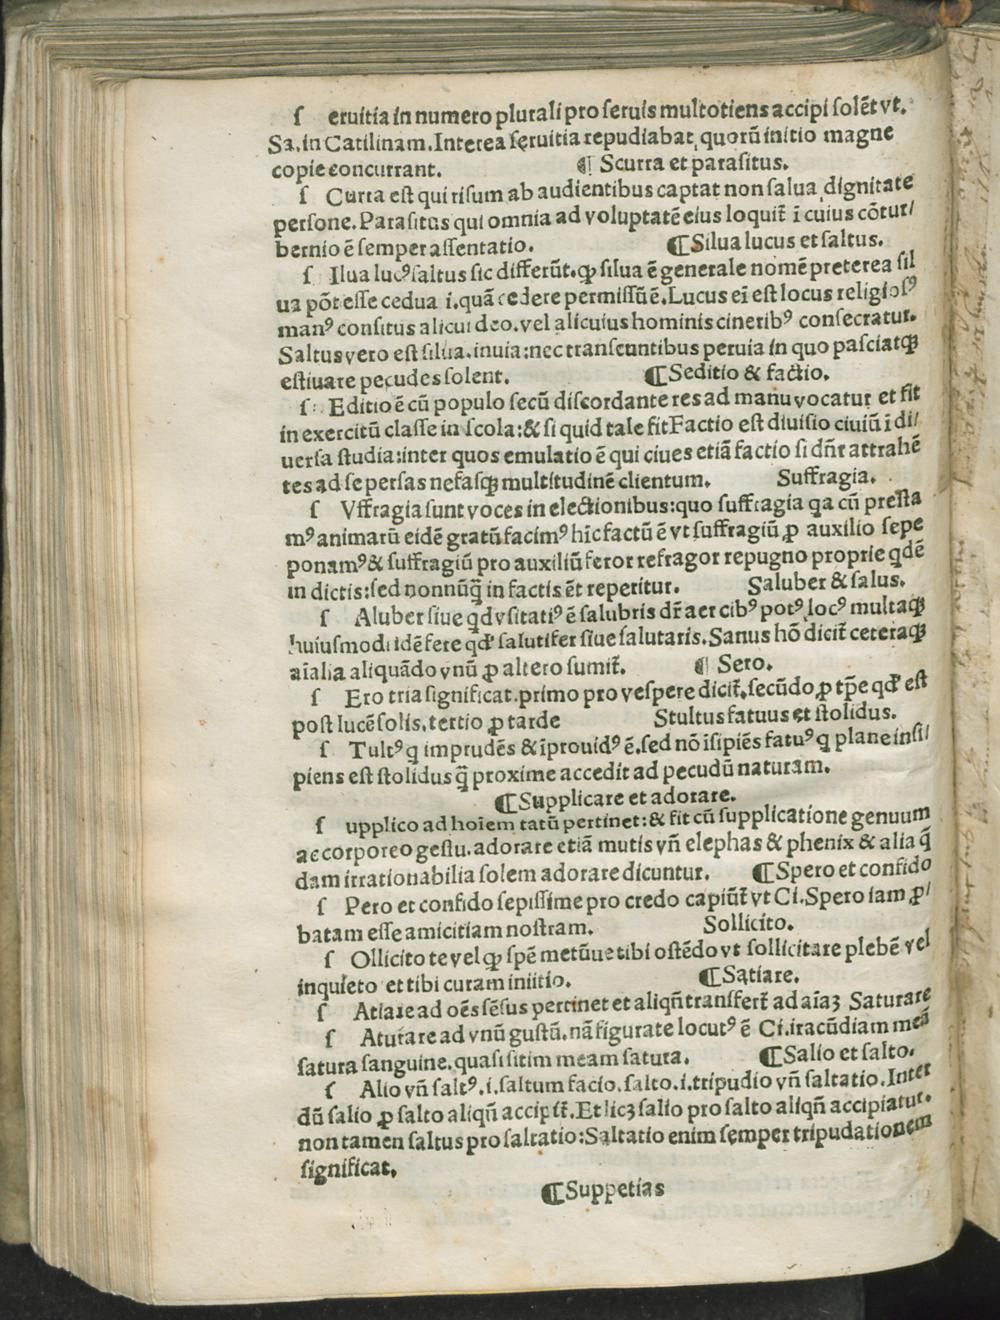 ſ eruitia in numero plurali pro ſeruis multotiens accipi ſolēt vt.
Sa. in Catilinam. Interea ſeruitia repudiabat, quorū initio magne
copie concurrant. ¶ Scurra et paraſitus.
ſ Curra eſt qui riſum ab audientibus captat non ſalua dignitate
perſone. Paraſitus qui omnia ad voluptatē eius loquit̄ ī cuius cōtur/
bernio ē ſemper aſſentatio. ¶Silua lucus et ſaltus.
ſ Ilua lucꝰ ſaltus ſic differūt. ꝙ ſilua ē generale nomē preterea ſil
ua pōt eſſe cedua .i. quā cedere permiſſū ē. Lucus ei eſt locus religioſꝰ
manꝰ conſitus alicui deo. vel alicuius hominis cineribꝰ conſecratur.
Saltus vero eſt ſilua. inuia: nec tranſeuntibus peruia in quo paſciatqꝫ
eſtiuare pecudes ſolent. ¶Seditio & factio.
ſ Editio ē cū populo ſecū diſcordante res ad manū vocatur et fit
in exercitū claſſe in ſcola: & ſi quid tale fit Factio eſt diuiſio ciuiū ī di/
uerſa ſtudia: inter quos emulatio ē qui ciues etiā factio ſi dn̄r attrahē
tes ad ſe perſas nefaſqꝫ multitudinē clientum. Suffragia.
ſ Vffragia ſunt voces in electionibus: quo ſuffragia qa cū preſta
mꝰ animarū eidē gratū facimꝰ hīc factū ē vt ſuffragiū ꝓ auxilio ſepe
ponamꝰ & ſuffragiū pro auxiliū feror refragor repugno proprie qdē
in dictis: ſed nonnūq̄ in factis ēt reperitur. Saluber & ſalus.
ſ Aluber ſiue qd vſitatiꝰ ē ſalubris dr̄ aer cibꝰ potꝰ locꝰ multaqꝫ
huiuſmodi idē fere qď ſalutifer ſiue ſalutaris. Sanus hō dicit̄ ceteraqꝫ
aīalia aliquādo vnū ꝓ altero ſumit̄. ¶ Sero.
ſ Ero tria ſignificat. primo pro veſpere dicit̄. ſecūdo ꝓ tp̄e qď eſt
poſt lucē ſolis. tertio ꝓ tarde Stultus fatuus et ſtolidus.
ſ Tultꝰ q imprudēs & īprouidꝰ ē. ſed nō īſipiēs fatuꝰ q plane inſi/
piens eſt ſtolidus q̄ proxime accedit ad pecudū naturam.
¶Supplicare et adorare.
ſ upplico ad hoīem tatū pertinet: & fit cū ſupplicatione genuum
ac corporeo geſtu. adorare etiā mutis vn̄ elephas & phenix & alia q̄
dam irrationabilia ſolem adorare dicuntur. ¶Spero et confido
ſ Pero et confido ſepiſſime pro credo capiūt̄ vt Ci. Spero iam ꝓ/
batam eſſe amicitiam noſtram. Sollicito.
ſ Ollicito te vel ꝙ ſpē metūue tibi oſtēdo vt ſollicitare plebē vel
inquieto et tibi curam iniitio. ¶Satiare.
ſ Atiare ad oēs ſēſus pertinet et aliqn̄ tranſfert̄ ad aīaꝫ Saturare
ſ Aturare ad vnū guſtū. nā figurate locutꝰ ē Ci. iracūdiam meā
ſatura ſanguine. quaſi ſitim meam ſatura. ¶Salio et ſalto.
ſ Alio vn̄ ſaltꝰ .i. ſaltum facio. ſalto .i. tripudio vn̄ ſaltatio. Inter
dū ſalio ꝓ ſalto aliqn̄ accipit̄. Et licꝫ ſalio pro ſalto aliqn̄ accipiatur.
non tamen ſaltus pro ſaltatio: Saltatio enim ſemper tripudationem
ſignificat.
¶Suppetias